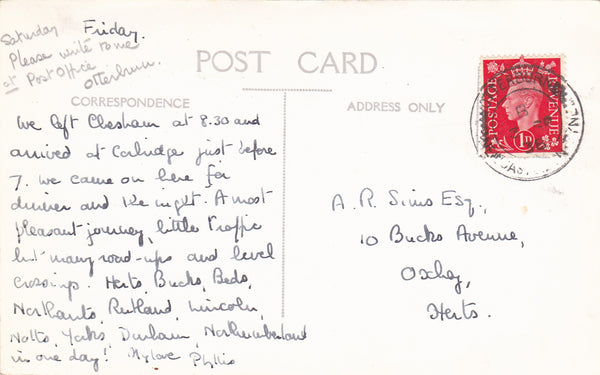 Friday.
Saturday
Please write to me
at Post Office
Otterburn.
POST CARD
CORRESPONDENCE
ADDRESS ONLY
We left Chesham at 8.30 and
arrived at Corbridge just before
7. We came on here for
dinner and the night. A most
pleasant journey, little traffic
but many road-ups and level
crossings. Herts, Bucks, Beds,
Northants, Rutland, Lincoln,
Notts, Yorks, Durham, Northumberland
in one day! My love Phyllis
A. R. Sims Esq.,
10 Bucks Avenue,
Oxhey,
Herts.
POSTAGE
REVENUE
1D